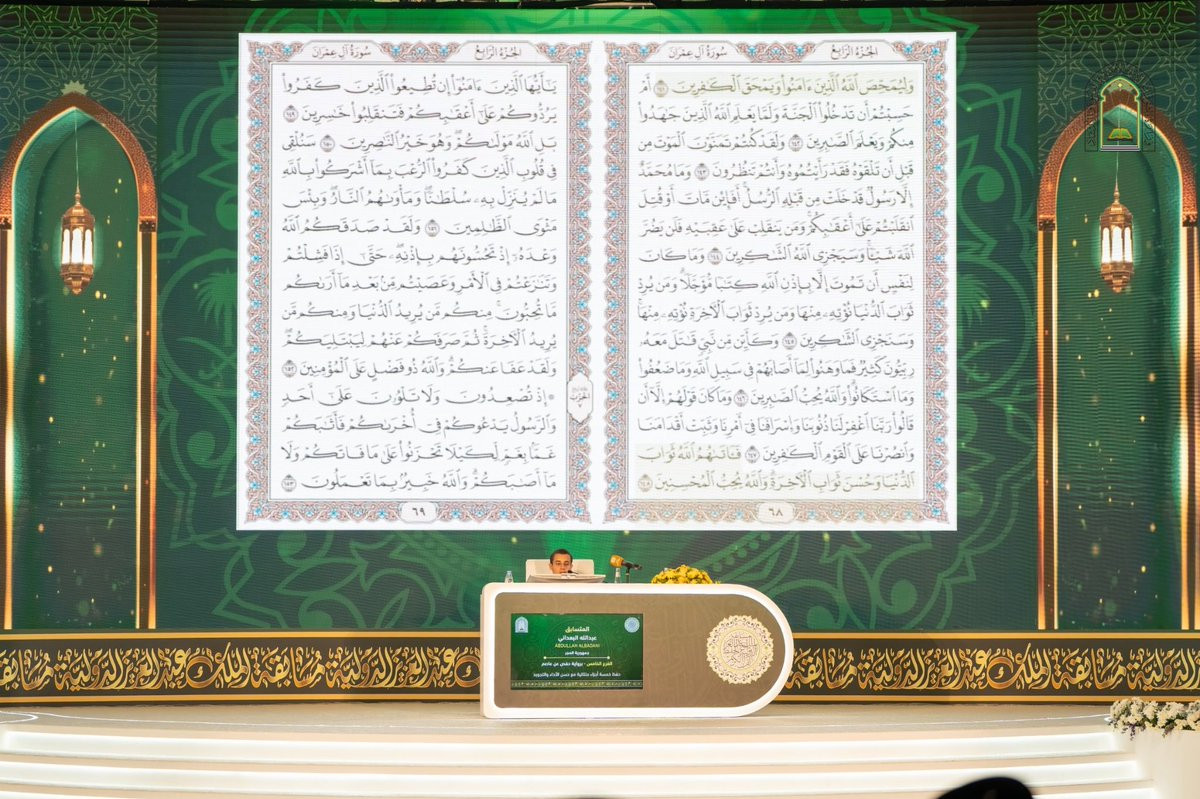 الجزء الرابع
سورة آل عمران
وَلِيُمَحِّصَ اللَّهُ الَّذِينَ ءَامَنُوا وَيَمْحَقَ الْكَٰفِرِينَ ١٤١ أَمْ
حَسِبْتُمْ أَن تَدْخُلُوا الْجَنَّةَ وَلَمَّا يَعْلَمِ اللَّهُ الَّذِينَ جَٰهَدُوا
مِنكُمْ وَيَعْلَمَ الصَّٰبِرِينَ ١٤٢ وَلَقَدْ كُنتُمْ تَمَنَّوْنَ الْمَوْتَ مِن
قَبْلِ أَن تَلْقَوْهُ فَقَدْ رَأَيْتُمُوهُ وَأَنتُمْ تَنظُرُونَ ١٤٣ وَمَا مُحَمَّدٌ
إِلَّا رَسُولٌ قَدْ خَلَتْ مِن قَبْلِهِ الرُّسُلُ أَفَإِيْن مَّاتَ أَوْ قُتِلَ
انقَلَبْتُمْ عَلَىٰ أَعْقَٰبِكُمْ وَمَن يَنقَلِبْ عَلَىٰ عَقِبَيْهِ فَلَن يَضُرَّ
اللَّهَ شَيْـًٔا وَسَيَجْزِي اللَّهُ الشَّٰكِرِينَ ١٤٤ وَمَا كَانَ
لِنَفْسٍ أَن تَمُوتَ إِلَّا بِإِذْنِ اللَّهِ كِتَٰبًا مُّؤَجَّلًا وَمَن يُرِدْ
ثَوَابَ الدُّنْيَا نُؤْتِهِ مِنْهَا وَمَن يُرِدْ ثَوَابَ الْءَاخِرَةِ نُؤْتِهِ مِنْهَا
وَسَنَجْزِي الشَّٰكِرِينَ ١٤٥ وَكَأَيِّن مِّن نَّبِيٍّ قَٰتَلَ مَعَهُ
رِبِّيُّونَ كَثِيرٌ فَمَا وَهَنُوا لِمَا أَصَابَهُمْ فِي سَبِيلِ اللَّهِ وَمَا ضَعُفُوا
وَمَا اسْتَكَانُوا وَاللَّهُ يُحِبُّ الصَّٰبِرِينَ ١٤٦ وَمَا كَانَ قَوْلَهُمْ إِلَّا أَن
قَالُوا رَبَّنَا اغْفِرْ لَنَا ذُنُوبَنَا وَإِسْرَافَنَا فِي أَمْرِنَا وَثَبِّتْ أَقْدَامَنَا
وَانصُرْنَا عَلَى الْقَوْمِ الْكَٰفِرِينَ ١٤٧ فَـَٔاتَىٰهُمُ اللَّهُ ثَوَابَ
الدُّنْيَا وَحُسْنَ ثَوَابِ الْءَاخِرَةِ وَاللَّهُ يُحِبُّ الْمُحْسِنِينَ ١٤٨
٦٨
الجزء الرابع
سورة آل عمران
يَٰأَيُّهَا الَّذِينَ ءَامَنُوا إِن تُطِيعُوا الَّذِينَ كَفَرُوا
يَرُدُّوكُمْ عَلَىٰ أَعْقَٰبِكُمْ فَتَنقَلِبُوا خَٰسِرِينَ ١٤٩
بَلِ اللَّهُ مَوْلَىٰكُمْ وَهُوَ خَيْرُ النَّٰصِرِينَ ١٥٠ سَنُلْقِي
فِي قُلُوبِ الَّذِينَ كَفَرُوا الرُّعْبَ بِمَا أَشْرَكُوا بِاللَّهِ
مَا لَمْ يُنَزِّلْ بِهِ سُلْطَٰنًا وَمَأْوَىٰهُمُ النَّارُ وَبِئْسَ
مَثْوَى الظَّٰلِمِينَ ١٥١ وَلَقَدْ صَدَقَكُمُ اللَّهُ
وَعْدَهُ إِذْ تَحُسُّونَهُم بِإِذْنِهِ حَتَّىٰ إِذَا فَشِلْتُمْ
وَتَنَٰزَعْتُمْ فِي الْأَمْرِ وَعَصَيْتُم مِّن بَعْدِ مَا أَرَىٰكُم
مَّا تُحِبُّونَ مِنكُم مَّن يُرِيدُ الدُّنْيَا وَمِنكُم مَّن
يُرِيدُ الْءَاخِرَةَ ثُمَّ صَرَفَكُمْ عَنْهُمْ لِيَبْتَلِيَكُمْ
وَلَقَدْ عَفَا عَنكُمْ وَاللَّهُ ذُو فَضْلٍ عَلَى الْمُؤْمِنِينَ ١٥٢
۞ إِذْ تُصْعِدُونَ وَلَا تَلْوُونَ عَلَىٰ أَحَدٍ
وَالرَّسُولُ يَدْعُوكُمْ فِي أُخْرَىٰكُمْ فَأَثَٰبَكُمْ
غَمًّا بِغَمٍّ لِّكَيْلَا تَحْزَنُوا عَلَىٰ مَا فَاتَكُمْ وَلَا
مَا أَصَٰبَكُمْ وَاللَّهُ خَبِيرٌ بِمَا تَعْمَلُونَ ١٥٣
٦٩
المتسابق
عبدالله البعداني
جمهورية المجر
الفرع الخامس - برواية حفص عن عاصم
حفظ خمسة أجزاء متتالية مع حسن الأداء والتجويد
مسابقة الملك عبد العزيز الدولية
مسابقة الملك عبد العزيز الدولية